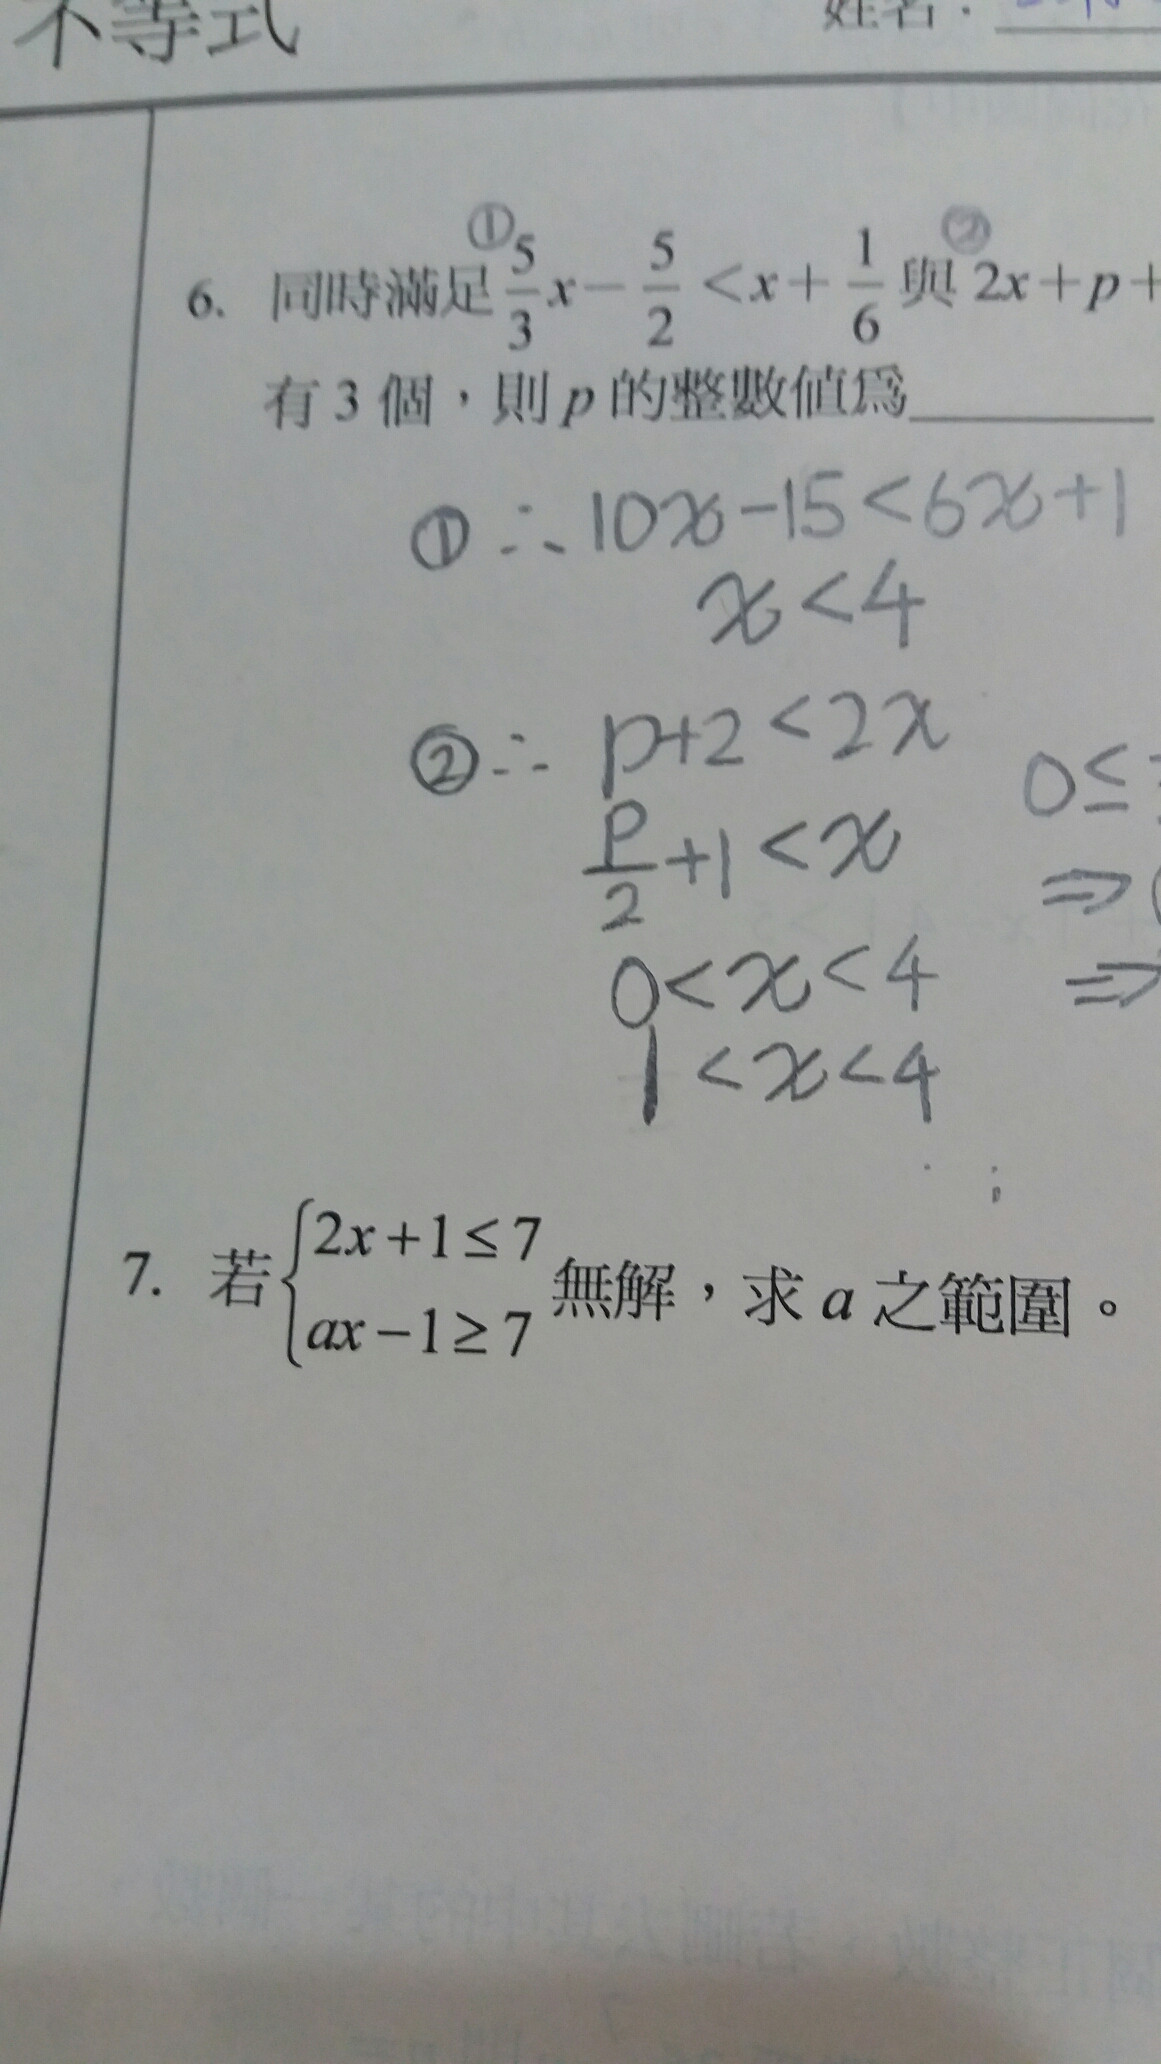 不等式
姓名:
6. 同時滿足 5/3 x - 5/2 < x + 1/6 與 2x + p +
① ②
有 3 個，則 p 的整數值為
① ∴ 10x - 15 < 6x + 1
x < 4
② ∴ p + 2 < 2x
0 ≤
p/2 + 1 < x
⇒
0 < x < 4
⇒
1 < x < 4
7. 若 { 2x + 1 ≤ 7
ax - 1 ≥ 7 無解，求 a 之範圍。